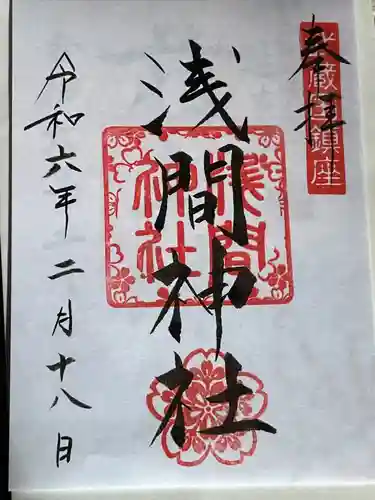 奉拝
浅間神社
浅間
神社
令和六年二月十八日